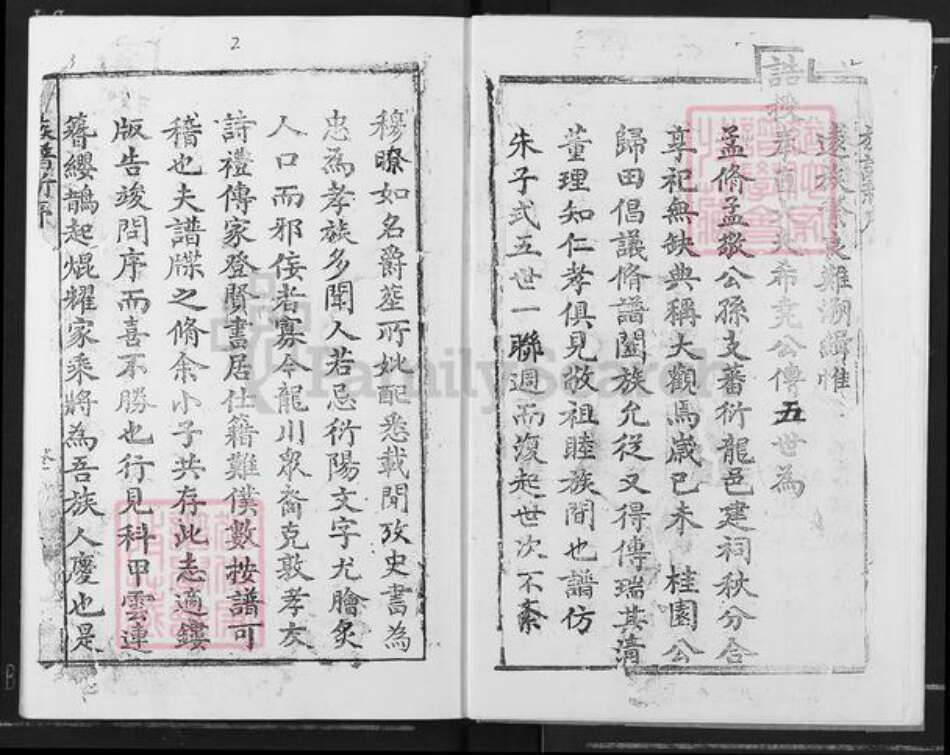 遠族
難溯緝惟
希尭公傳五世為
孟脩孟撥公孫支蕃衍龍邑建祠秋分合
享祀無缺典稱大觀焉歲已未 桂園公
歸田倡議脩譜闔族允從又得傅瑞其濤
董理知仁孝俱見敬祖睦族間也譜仿
朱子式五世一聯週而復起世次不紊
2
穆暸如名爵塟所妣配悉載聞攷史書為
忠為孝族多聞人若忌衍陽文字尤膾炙
人口而邪佞者寡今龍川衆裔克敦孝友
詩禮傳家登賢書居仕籍難僕數按譜可
稽也夫譜牒之脩余小子共存此志適鏤
版告竣問序而喜不勝也行見科甲雲連
簪纓鵲起焜耀家乘將為吾族人慶也是
族譜新序
FamilySearch